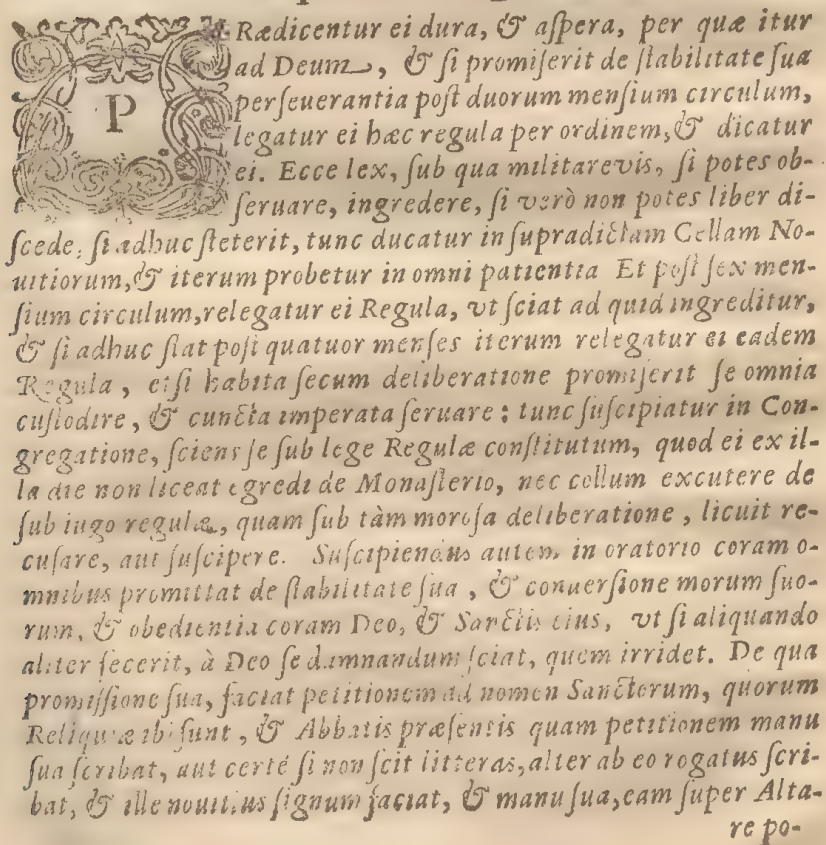 PRædicentur ei dura, & aſpera, per quæ itur
ad Deum, & ſi promiſerit de ſtabilitate ſua
perſeuerantia poſt duorum menſium circulum,
legatur ei hæc regula per ordinem, & dicatur
ei. Ecce lex, ſub qua militare vis, ſi potes ob-
ſeruare, ingredere, ſi verò non potes liber di-
ſcede, ſi adhuc ſteterit, tunc ducatur in ſupradictam Cellam No-
uitiorum, & iterum probetur in omni patientia Et poſt ſex men-
ſium circulum, relegatur ei Regula, vt ſciat ad quid ingreditur,
& ſi adhuc ſtat poſt quatuor menſes iterum relegatur ei eadem
Regula, et ſi habita ſecum deliberatione promiſerit ſe omnia
cuſtodire, & cuncta imperata ſeruare: tunc ſuſcipiatur in Con-
gregatione, ſciens ſe ſub lege Regulæ conſtitutum, quod ei ex il-
la die non liceat egredi de Monaſterio, nec collum excutere de
ſub iugo regulæ, quam ſub tàm moroſa deliberatione, licuit re-
cuſare, aut ſuſcipere. Suſcipiendus autem in oratorio coram o-
mnibus promittat de ſtabilitate ſua, & conuerſione morum ſuo-
rum, & obedientia coram Deo, & Sanctis eius, vt ſi aliquando
aliter fecerit, à Deo ſe damnandum ſciat, quem irridet. De qua
promiſſione ſua, faciat petitionem ad nomen Sanctorum, quorum
Reliquiæ ibi ſunt, & Abbatis præſentis quam petitionem manu
ſua ſcribat, aut certé ſi non ſcit litteras, alter ab eo rogatus ſcri-
bat, & ille nouitius ſignum faciat, & manu ſua, eam ſuper Alta-
re po-